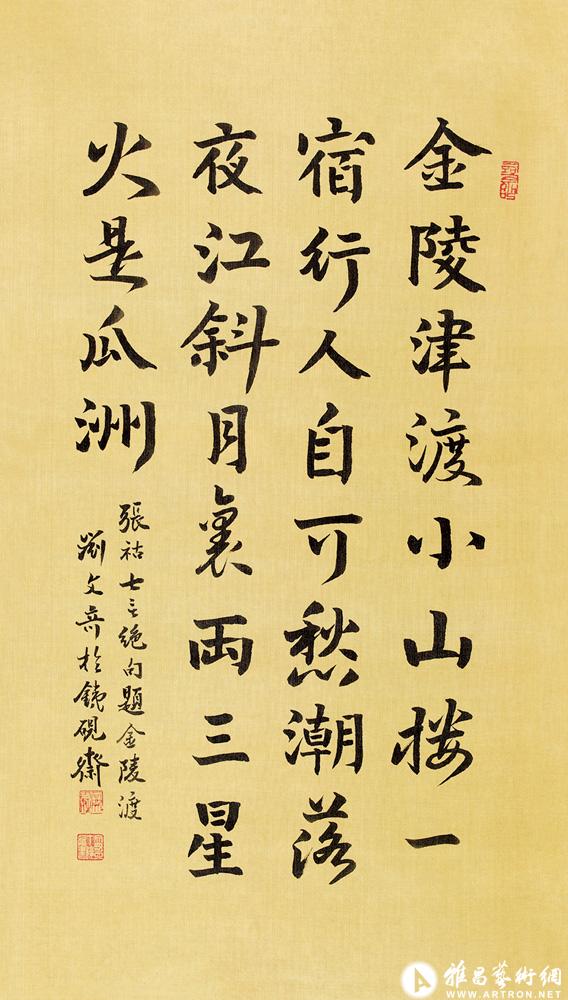 金陵津渡小山楼一
宿行人自可愁潮落
夜江斜月裏両三星
火是瓜洲
張祜七言絶句題金陵渡
劉文於鐵硯齋
雅昌藝術網
WWW.ARTRON.NET